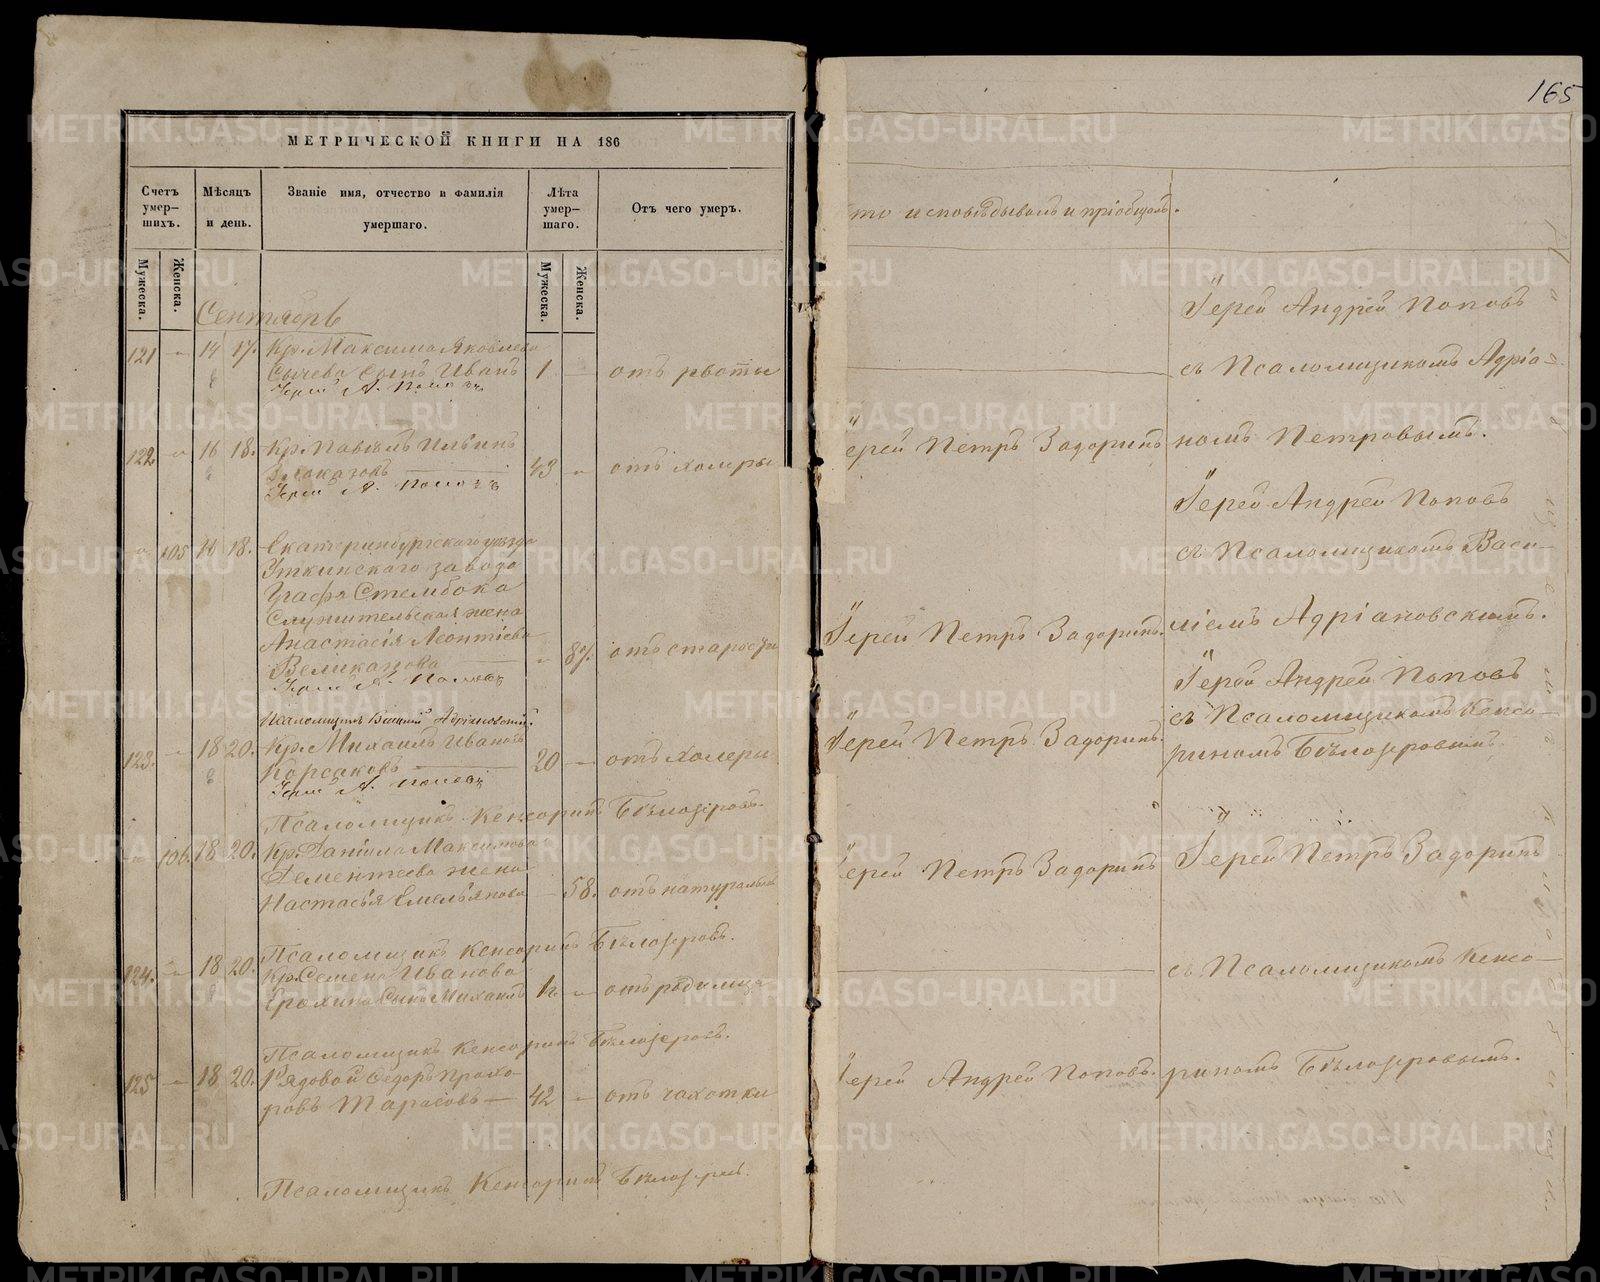 165
МЕТРИЧЕСКОЙ КНИГИ НА 186
Счетъ умер-шихъ.
Мѣсяцъ и день.
Званіе имя, отчество и фамилія умершаго.
Лѣта умер-шаго.
Отъ чего умеръ.
Мужеска.
Женска.
Мужеска.
Женска.
Сентябрь
121 14 17. Кр. Максима Яковлева
Сычева сынъ Иванъ 1 отъ рвоты
122 16 18. Кр. Павелъ Ильинъ
43 отъ холеры
105 16 18. Екатеринбургскаго уѣзда
Уткинскаго завода
Графа Стембока
Служительская жена
Анастасія Леонтіева
Великанова отъ старости
Псаломщикъ Василій Адріановскій.
123. 18 20. Кр. Михаилъ Ивановъ
Корсаковъ 20 отъ холеры
Псаломщикъ Кенсоринъ Бѣлозеровъ.
106. 18 20. Кр. Данила Максимова
Дементьева жена
Настасья Емельянова 58. отъ натуральной
Псаломщикъ Кенсоринъ Бѣлозеровъ.
124. 18 20. Кр. Семена Иванова
Ерохина сынъ Михаилъ отъ родимца
Псаломщикъ Кенсоринъ Бѣлозеровъ.
125 18 20. Рядовой Ѳедоръ Прохо-
ровъ Тарасовъ 42 отъ чахотки
Псаломщикъ Кенсоринъ Бѣлозеровъ.
кто исповѣдывалъ и пріобщалъ.
Іерей Андрей Поповъ
съ Псаломщикомъ Адріа-
Іерей Петръ Задоринъ номъ Петровымъ.
Іерей Андрей Поповъ
съ Псаломщикомъ Васи-
Іерей Петръ Задоринъ. ліемъ Адріановскимъ.
Іерей Андрей Поповъ
съ Псаломщикомъ Кенсо-
Іерей Петръ Задоринъ. риномъ Бѣлозеровымъ.
Іерей Петръ Задоринъ Іерей Петръ Задоринъ
съ Псаломщикомъ Кенсо-
Іерей Андрей Поповъ. риномъ Бѣлозеровымъ.
METRIKI.GASO-URAL.RU